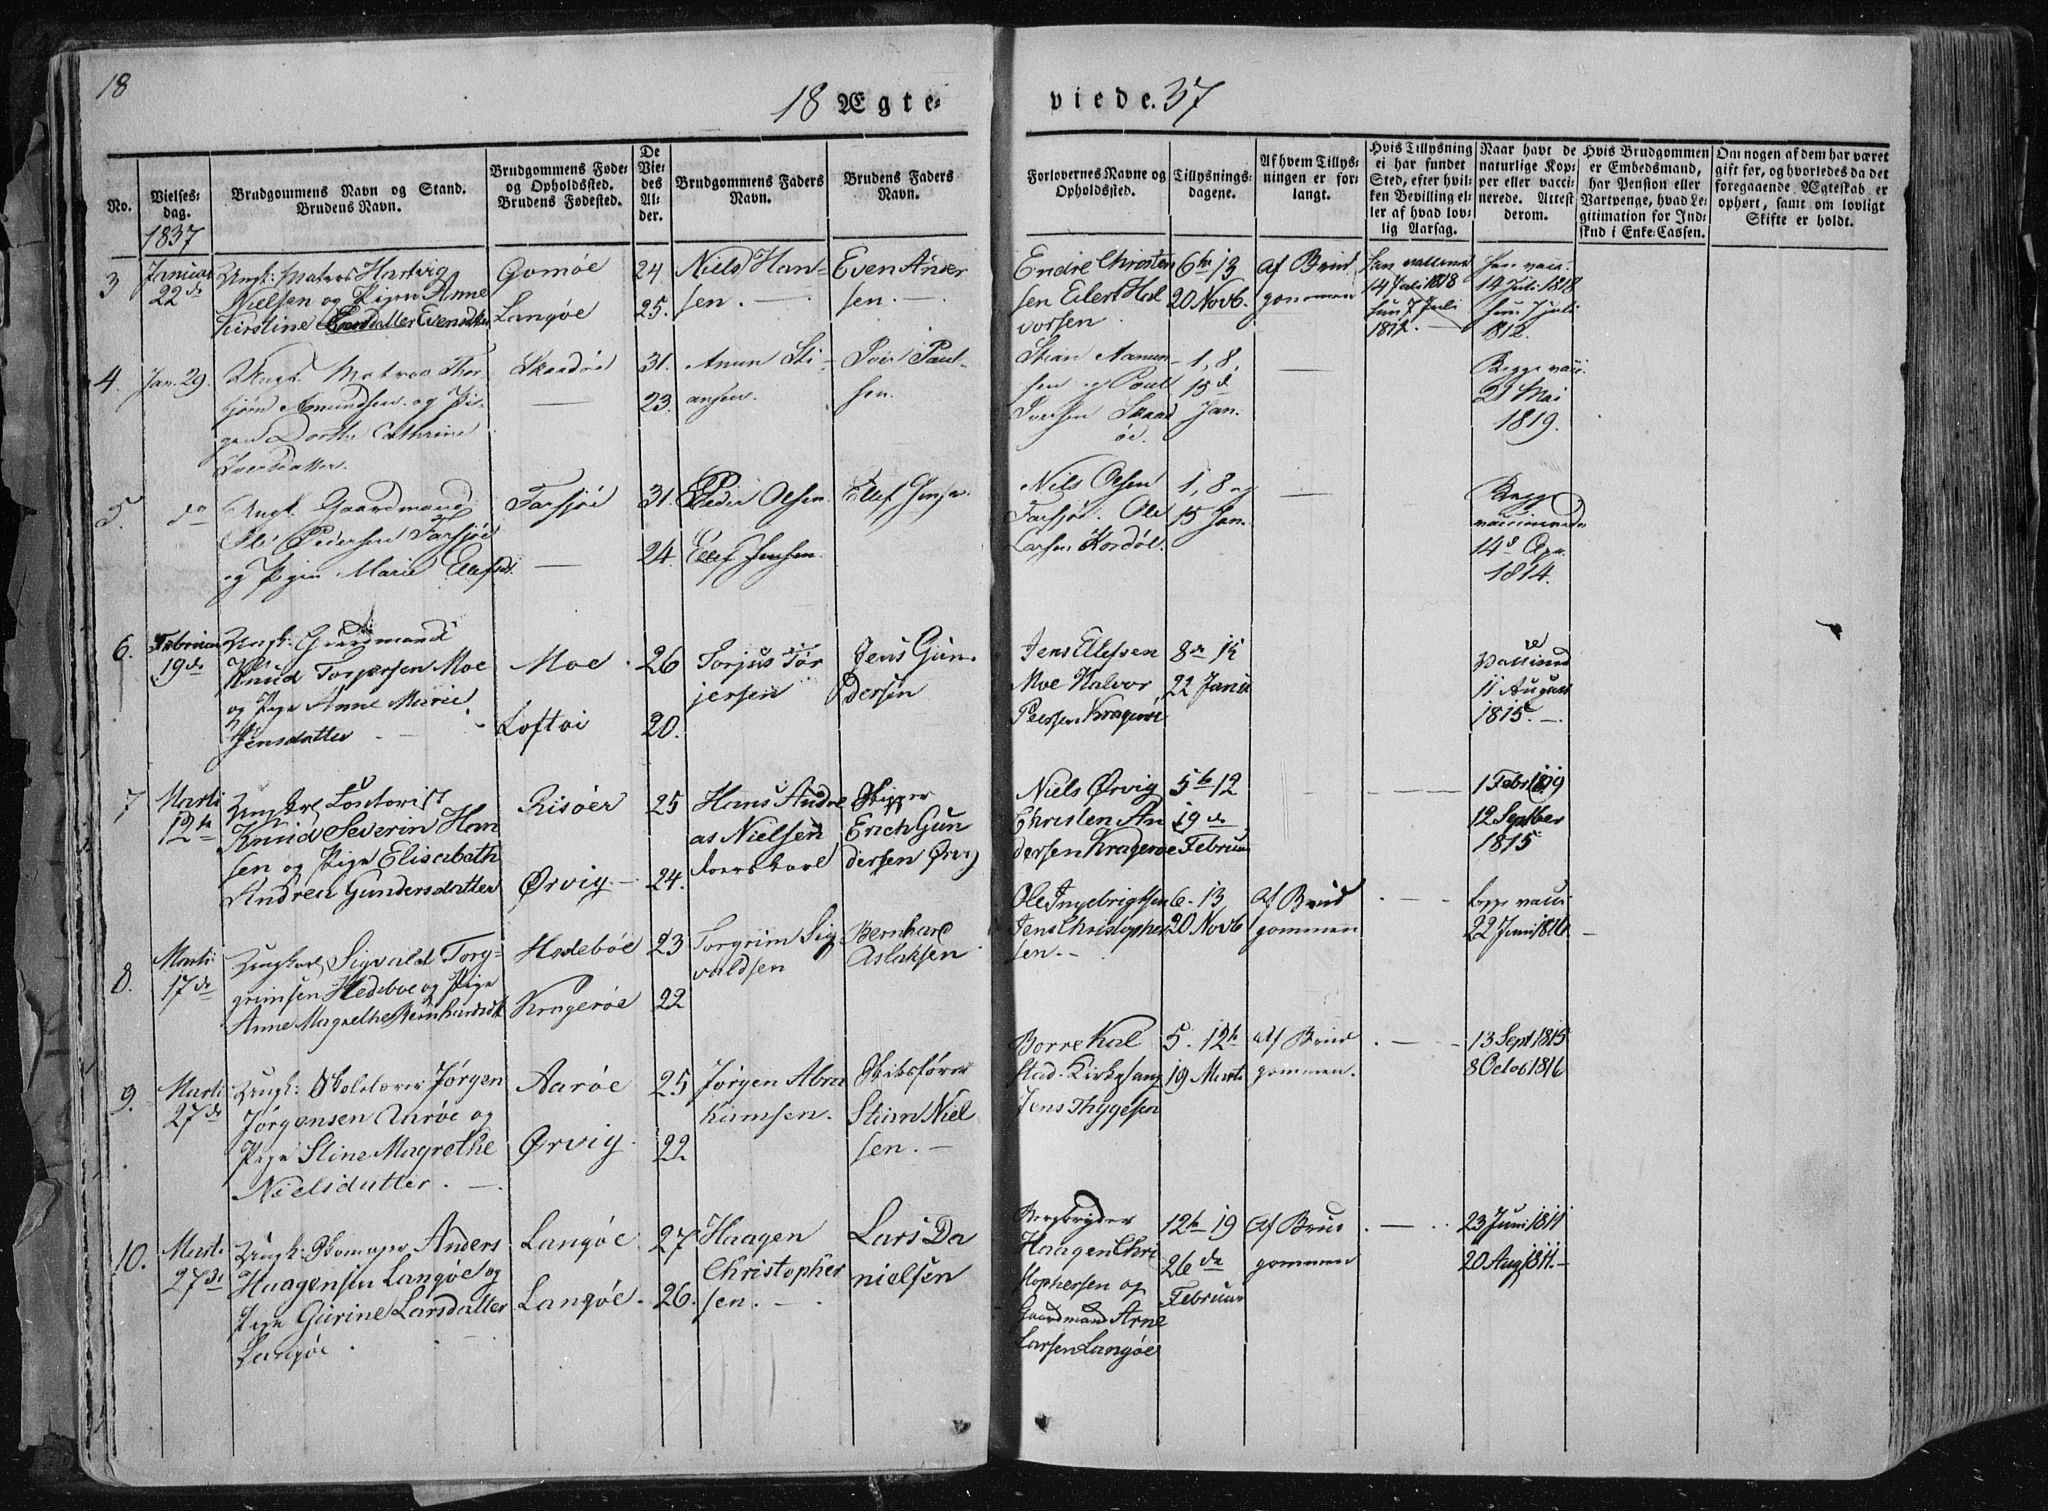 18
18 Ægte-
viede. 37
No.
Vielses-
dag.
1837
Brudgommens Navn og Stand.
Brudens Navn.
Brudgommens Føde-
og Opholdssted.
Brudens Fødested.
De
Vie-
des
Al-
der.
Brudgommens Faders
Navn.
Brudens Faders
Navn.
Forlovernes Navne og
Opholdssted.
Tillysnings-
dagene.
Af hvem Tillys-
ningen er for-
langt.
Hvis Tillysning
ei har fundet
Sted, efter hvil-
ken Bevilling el-
ler af hvad lov-
lig Aarsag.
Naar havt de
naturlige Kop-
per eller vacci-
nerede. Attest
derom.
Hvis Brudgommen
er Embedsmand,
har Pension eller
Vartpenge, hvad Le-
gitimation for Ind-
skud i Enke-Cassen.
Om nogen af dem har været
gift før, og hvorledes da det
foregaaende Ægteskab er
ophørt, samt om lovligt
Skifte er holdt.
3
Januar
22de
Ungk: Matros Hartvig
Nielsen og Pigen Anne
Kirstine Evensdtr
Gomøe
Langøe
24
25.
Niels Han-
sen. —
Even Ander
sen. —
Endre Christen
sen Eilert Hal
vorsen
6te 13
20 Novb.
af Brud
gommen
han vaccineret
14 Juli 1818
hun 7 Juli
1812. —
han vacc.
14 Juli 1818
hun 7 Juli
1812.
4.
Jan. 29.
Ungk. Matros Thor
bjørn Amundsen og Pi-
gen Dorthe Cathrine
Iversdatter.
Skaadøe
—
31.
23.
Amun Sti-
ansen.
Iver Paul-
sen.
Stian Aamun-
sen og Paul
Iversen Skaad
øe.
1, 8,
15d
Jan.
—
Begge vacc.
21 Mai
1819.
5.
do
Ungk. Gaardmand
Ole Pedersen Farsjøe
og Pigen Marie Ellefsd.
Farsjøe
—
31.
24.
Peder Olsen.
Ellef Jensen
Ellef Jensen.
Nils Olsen
Farsjøe. Ole
Larsen Kordøl.
1, 8 og
15 Jan.
—
Begge
vaccinerede
14d Apr.
1814.
6.
Februar
19de
Ungk: Gaardmand
Knud Torjersen Moe
og Pige Anne Marie
Jensdatter —
Moe
Loftøi
26
20.
Torjus Tør
jersen
Jens Gun-
dersen
Jens Ellefsen
Moe Halvor
Peersen Kragerøe
8de 15
22 Janu
Vaccined
11 August
1815. —
7
Marti
12te
Ungkarl
Knud Severin Han
sen og Pige Elisabeth
Andrea Gundersdatter
Risøer
Ørvig. —
25
24.
Hans Andre
as Nielsen
Skipper
Erich Gun
dersen Ørvig
Niels Ørvig
Christen An
dersen Kragerøe
5te 12
19de
Februar
1 Febr 1819
12 Septber
1815
8.
Marti
17de
Ungkarl Sigvald Torg-
grimsen Hedeboe og Pige
Anne Magrethe Bernhardsdt
Hedebøe
Kragerøe
23
22
Torgrim Sig
valdsen
Bernhard
Aslaksen
Ole Ingebrigtsen
Jens Christopher
sen. —
6. 13
20 Novb
af Brud
gommen
. — .
begge vacci
22 Juni 1816. —
9.
Marti
27de
Ungk: Skolelærer Jørgen
Jørgensen Aarøe og
Pige Stine Magrethe
Nielsdatter. —
Aarøe
Ørvig.
25
22
Jørgen Abra
hamsen.
Skibsfører
Stian Niel
sen. —
Borre Kal
stad. Kirkesang
Jens Thygesen
5. 12te
19 Marti
af Brud
gommen.
. — .
13 Sept 1815
8 Octob 1816
10.
Marti
27de
Ungk: Anders
Haagensen Langøe og
Pige Gurine Larsdatter
Langøe.
Langøe
Langøe.
27
26.
Haagen
Christopher
sen. —
Lars Da
nielsen
Bergbryder
Haagen Chri
stophersen og
Gaardmand Arne
Larsen Langøe
12te 19
26de
Februar
af Brud
gommen
. — .
23 Juni 1811
20 Aug 1811. —